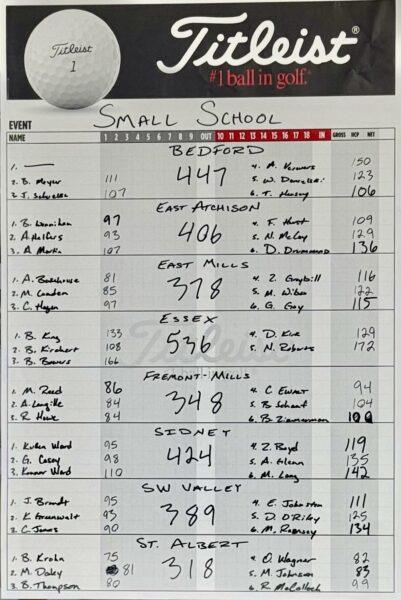 Titleist
1
Titleist®
#1 ball in golf.
EVENT SMALL SCHOOL
NAME 1 2 3 4 5 6 7 8 9 OUT 10 11 12 13 14 15 16 17 18 IN GROSS HCP NET
BEDFORD
1. — 4. A. 150
2. B. Meyer 111 447 5. W. 123
3. J. 107 6. T. 106
EAST ATCHISON
1. B. 97 4. F. Hunt 109
2. A 93 406 5. N. McCoy 129
3. A. Martin 107 6. D. Drummond 136
EAST MILLS
1. A. Bakehouse 81 4. Z. Graybill 116
2. M. Camden 85 378 5. M. 122
3. C. Hagen 97 6. G. Gay 115
ESSEX
1. B. King 133 4. D. 129
2. B. 108 536 5. N. Roberts 172
3. B. 166
Titleist
FREMONT-MILLS
1. M. Reed 86 4. C Ewalt 94
2. A. Langille 84 348 5. B Scharf 104
3. R. Howe 84 6. B Zimmerman 100
SIDNEY
1. Kolten Ward 95 4. Z. Boyd 119
2. G. Casey 98 424 5. A. Glenn 135
3. Konnor Ward 110 6. M. Long 142
SW VALLEY
1. J. Brandt 95 4. E. Johnston 111
2. K Greenwalt 93 389 5. D. O'Riley 125
3. C. Jones 90 6. M. Ramsey 134
ST. ALBERT
1. B. Krohn 75 4. O. Wagner 82
2. M. Daley 81 318 5. M. Johnson 83
3. B. Thompson 80 6. R. McCulloch 99